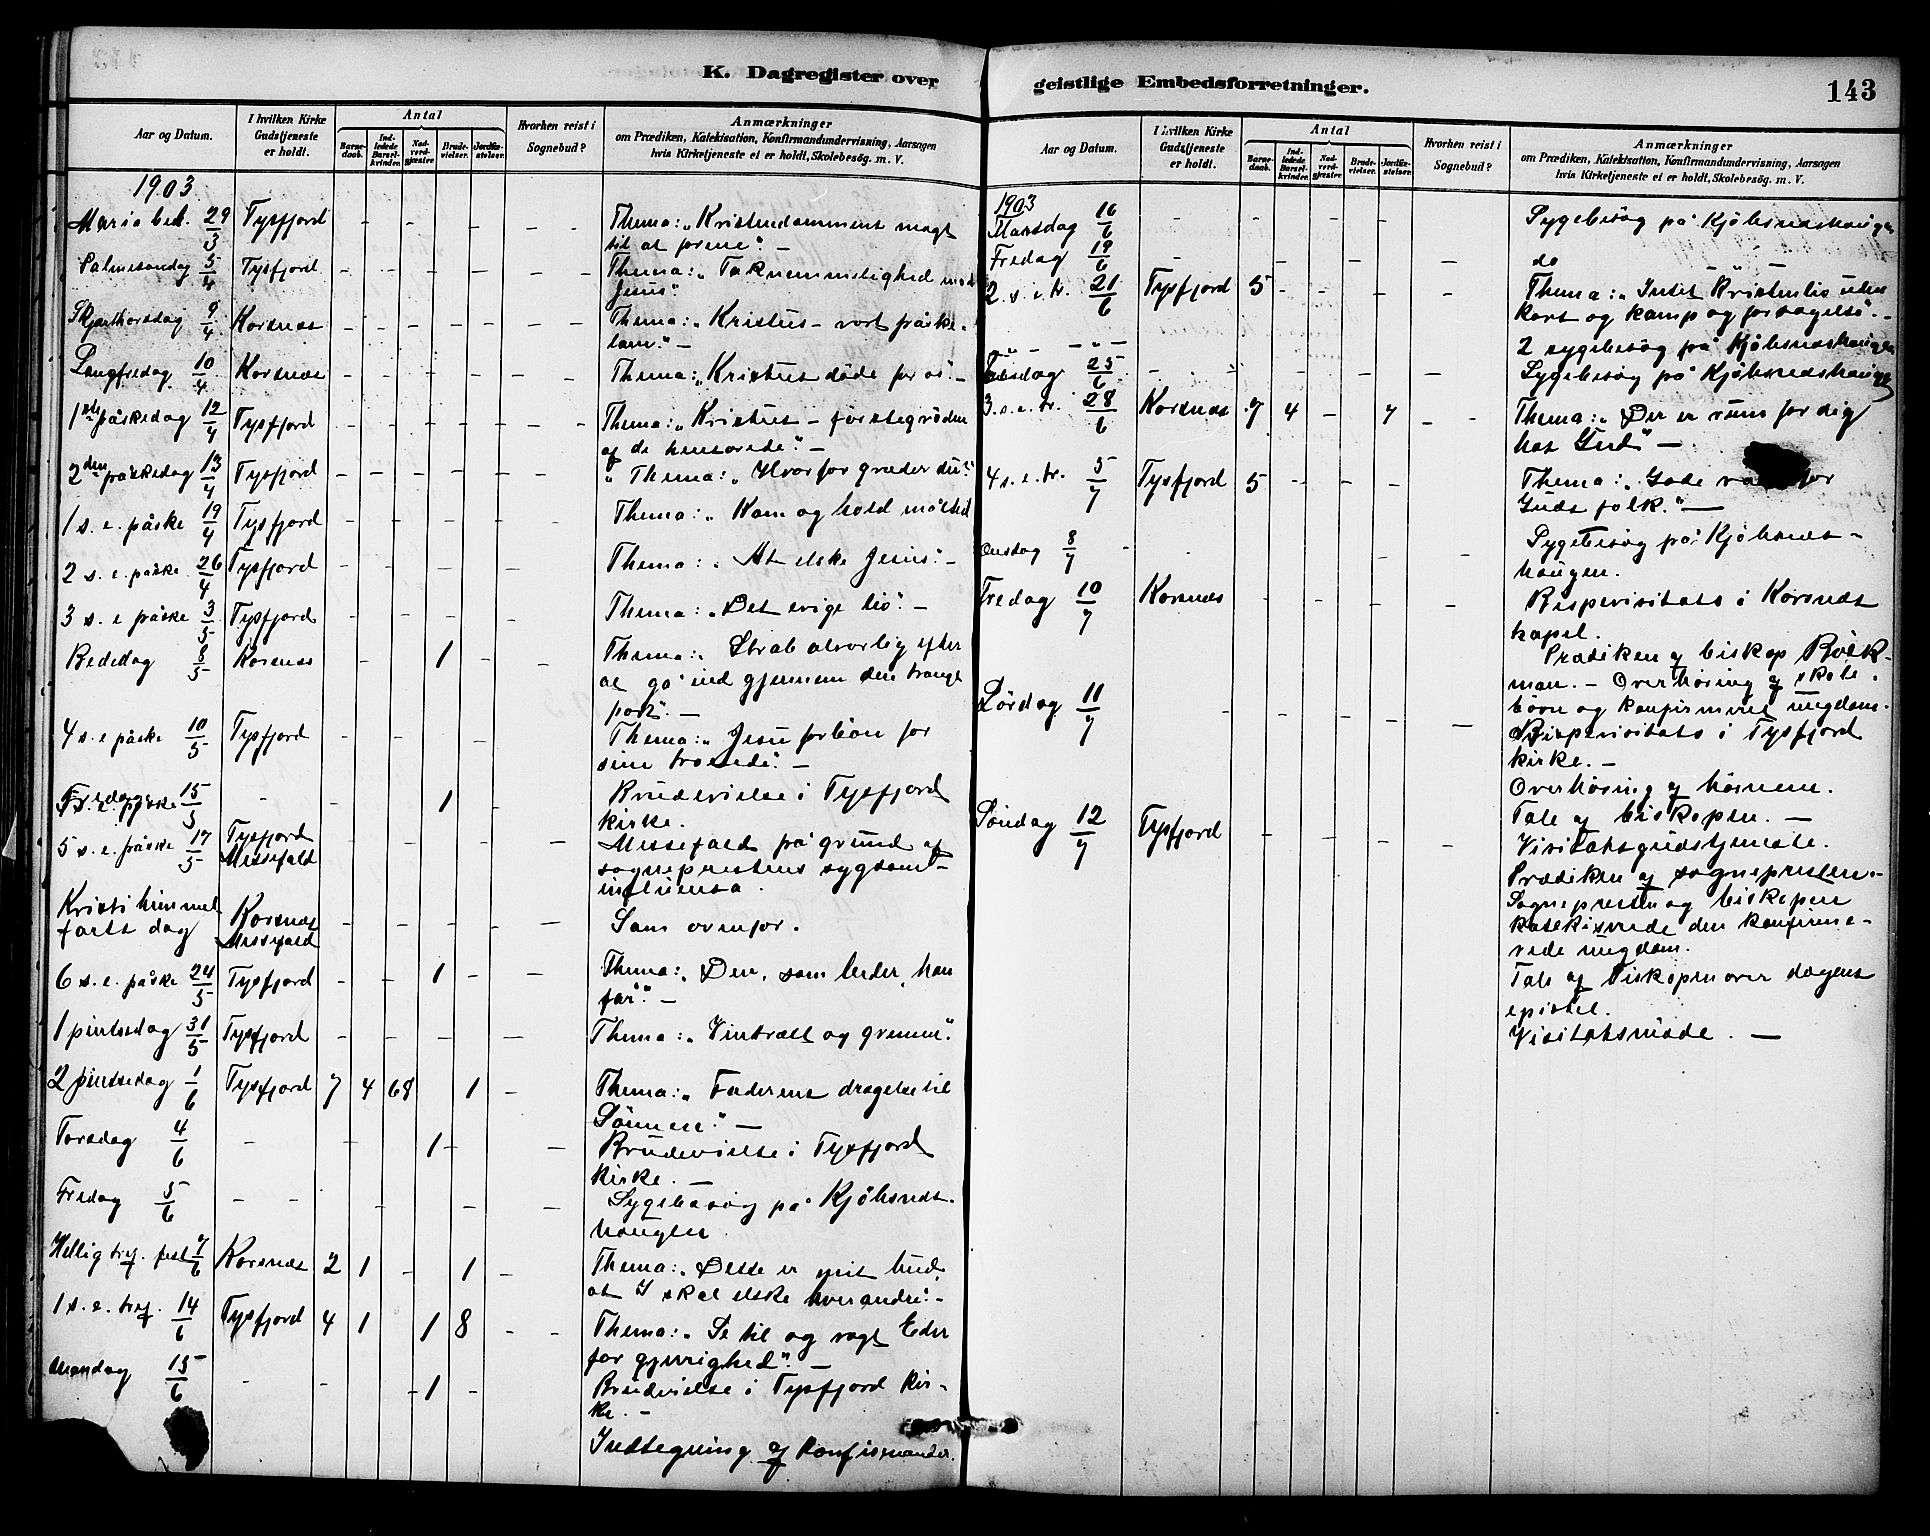 K. Dagregister over geistlige Embedsforretninger.
143
Aar og Datum.
I hvilken Kirke Gudstjeneste er holdt.
Antal
Barnedaab.
Indledede Barselkvinder.
Nadverdgjæster.
Brudevielser.
Jordfæstelser.
Hvorhen reist i Sognebud?
Anmærkninger
om Prædiken, Katekisation, Konfirmandundervisning, Aarsagen
hvis Kirketjeneste ei er holdt, Skolebesøg. m. V.
1903
Maria beb. 29/3 Tysfjord - - - - - Thema: „Kristendommens magt
til at forene". -
Palmesøndag 5/4 Tysfjord - - - - - - Thema: „Taknemmelighed mod
Jesus".
Skjærthorsdag 9/4 Korsnæs - - - - - - Thema: „Kristus - vort påske-
lam". -
Langfredag 10/4 Korsnæs - - - - - - Thema: „Kristus døde for os". -
1ste påskedag 12/4 Tysfjord - - - - - - Thema: „Kristus - førstegrøden
af de hensovede". -
2den påskedag 13/4 Tysfjord - - - - - - Thema: „Hvorfor græder du?"
1 s. e. påske 19/4 Tysfjord - - - - - - Thema: „Kom og hold måltid
2 s. e. påske 26/4 Tysfjord - - - - - Thema: „At elske Jesus". -
3 s. e påske 3/5 Tysfjord - - - - - Thema: „Det evige liv". -
Bededag 8/5 Korsnæs - - 1 - - Thema: „Stræb alvorlig efter
at gå ind gjennem den trange
port". -
4 s. e påske 10/5 Tysfjord - - - Thema: „Jesu forbøn for
sine troende". -
Fredag 15/5 - - - 1 - Brudevielse i Tysfjord
kirke.
5 s. e. påske 17/5 Tysfjord
Messefald - - - - - - Messefald på grund af
sogneprestens sygdom -
influensa.
Kristi himmel
farts dag Korsnæs
Messefald - - - - - - Som ovenfor.
6 s. e. påske 24/5 Tysfjord - - 1 - - Thema: „Den, som leder, han
får". -
1 pintsedag 31/5 Tysfjord - - - - - Thema: „Vintræet og grenene".
2 pintsedag 1/6 Tysfjord 7 4 68 1 - Thema: „Faderens dragelse til
Sønnen". -
Torsdag 4/6 - - 1 - - Brudevielse i Tysfjord
kirke. -
Fredag 5/6 - - - - - Sygebesøg på Kjöbsnæs-
haugen
Hellig tref. fest 7/6 Korsnæs 2 1 - 1 - Thema: „Dette er mit bud,
at I skal elske hverandre". -
1 s. e. tref. 14/6 Tysfjord 4 1 1 8 - - Thema: „Se til og vogt Eder
for gjerrighed". -
Mandag 15/6 - - - 1 - Brudevielse i Tysfjord kir-
ke. -
Indtegning af konfirmander.
Aar og Datum.
I hvilken Kirke Gudstjeneste er holdt.
Antal
Barnedaab.
Indledede Barselkvinder.
Nadverdgjæster.
Brudevielser.
Jordfæstelser.
Hvorhen reist i Sognebud?
Anmærkninger
om Prædiken, Katekisation, Konfirmandundervisning, Aarsagen
hvis Kirketjeneste ei er holdt, Skolebesøg. m. V.
1903
16/6 - - - - - Sygebesøg på Kjöbsnæshaugen
Fredag 19/6 - - - - - do - " -
2. s. e. tr. 21/6 Tysfjord 5 - - - - Thema: „Intet Kristenliv uden
kors og kamp og forsagelse". -
- " - - " - 2 sygebesøg på Kjöbsnæshaugen
25/6 - - - - - Sygebesøg på Kjöbsnæshaugen
3. s. e. tr. 28/6 Korsnæs 7 4 - 7 - - Thema: „Der er rum for dig
hos Gud" -
4 s. e. tr. 5/7 Tysfjord 5 - - - Thema: „Gode for
Guds folk." -
Onsdag 8/7 - - - - Sygebesøg på Kjöbsnæs-
haugen.
Fredag 10/7 Korsnæs - - - - - Bispevisitats i Korsnæs
kapel.
Prædiken af biskop Böck-
man. - Overhøring af skole-
børn og konfirmeret ungdom.
Lørdag 11/7 - - - - - Bispevisitats i Tysfjord
kirke. -
Overhøring af börnene.
Tale af biskopen. -
Søndag 12/7 Tysfjord - - - - Visitatsgudstjeneste.
Prædiken af sognepresten. -
Sognepresten og biskopen
katekiserede den konfirme-
rede ungdom.
Tale af biskopen over dagens
epistel.
Visitatsmøde. -